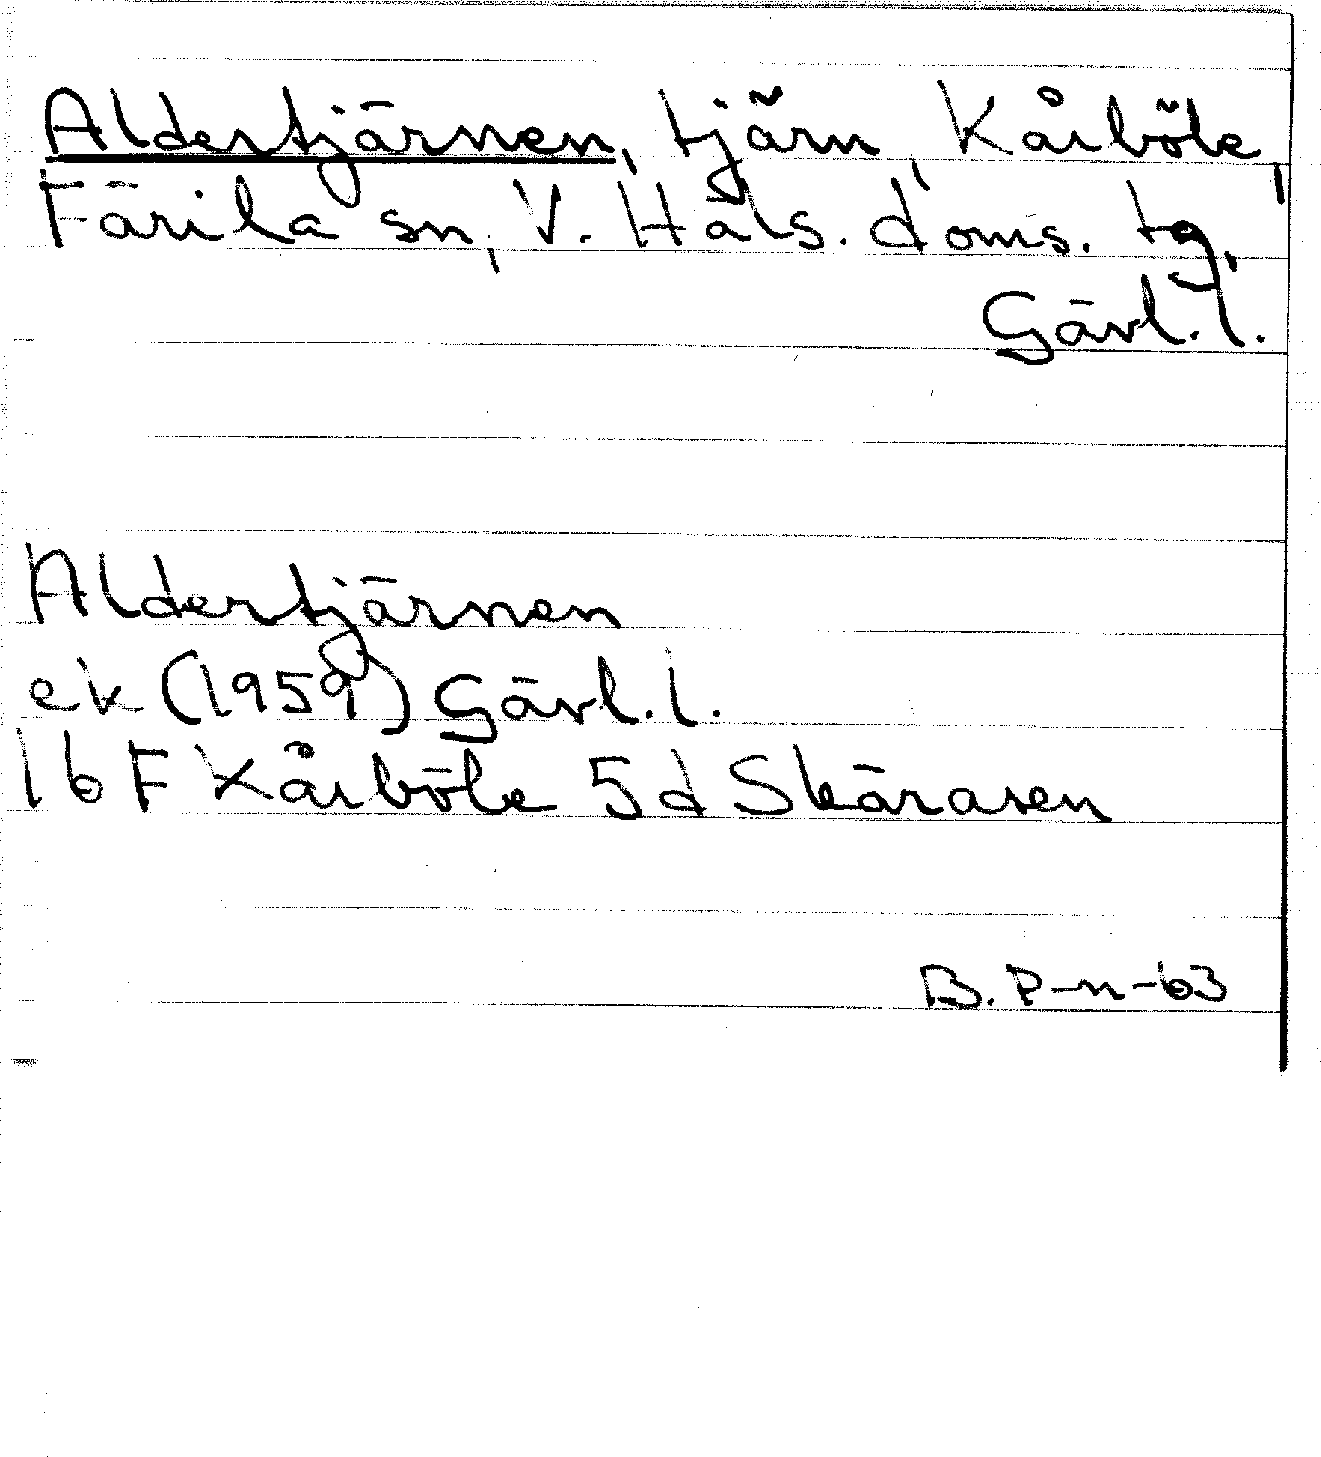 Aldertjärnen, tjärn, Kårböle,
Färila sn, V. Häls. doms. tg,
Gävl. l.
Aldertjärnen
ek (1959) Gävl. l.
16 F Kårböle 5 d Skäråsen
B. P-n-63